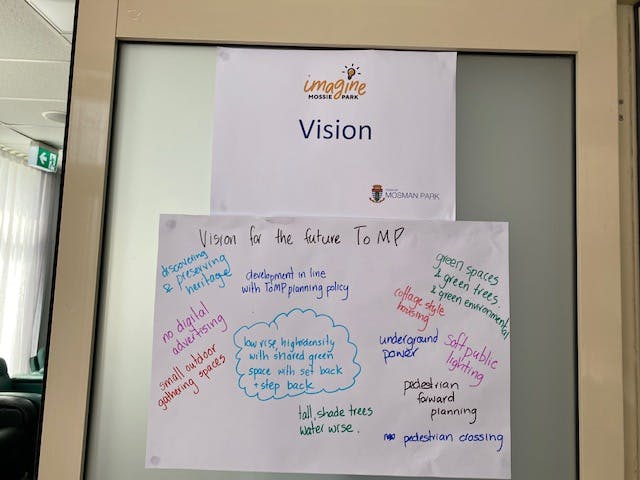 imagine
MOSSIE PARK
Vision
MOSMAN PARK
Vision for the future ToMP
discovering
& preserving
heritage
development in line
with ToMP planning policy
green spaces
& green trees.
& green environmental
cottage style
housing
no digital
advertising
low rise, high density
with shared green
space with set back
+ step back
underground
power
soft public
lighting
small outdoor
gathering spaces
pedestrian
forward
planning
tall, shade trees
water wise.
pedestrian crossing